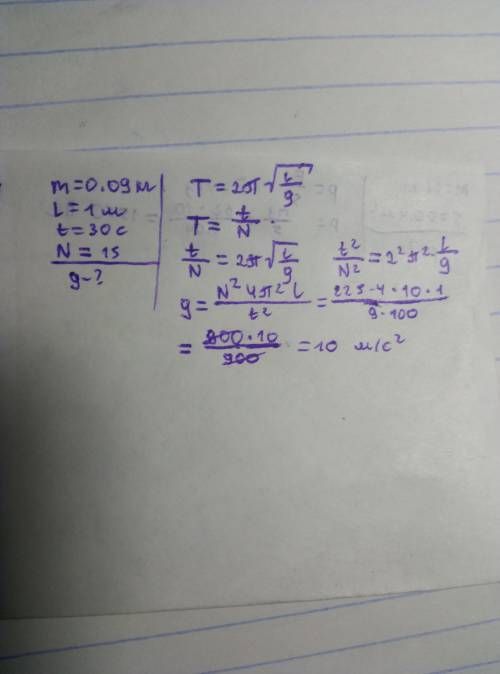 m=0.09м
l=1м
t=30c
N=15
g-?
T=2π√(l/g)
T=t/N.
t/N=2π√(l/g) t²/N²=2²π²·l/g
g=N²4π²l/t²=225·4·10·1/9·100
=900·10/900=10 м/с²